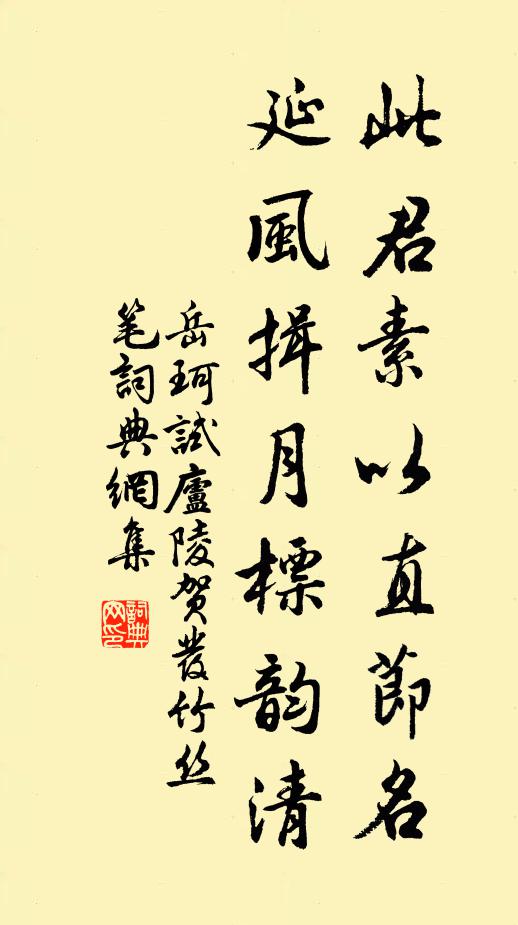 此君素以直節名
延風揖月標韵清
岳珂試廬陵贺發竹丝
笔詞典網集
詞典
网印